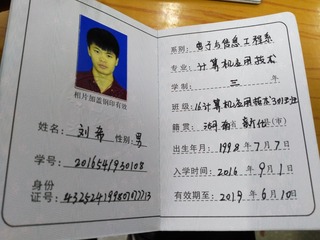 相片加盖钢印有效
姓名: 刘希 性别 男
学号: 2016541930108
身份
证号: 432524199807077713
系别: 电子与信息工程系
专业: 计算机应用技术
学制: 三 年
班级: 16计算机应用技术301班
籍贯: 湖南 省 新化 县(市)
出生年月: 1998 年 7 月 7 日
入学时间: 2016 年 9 月 1 日
有效期至: 2019 年 6 月 10 日